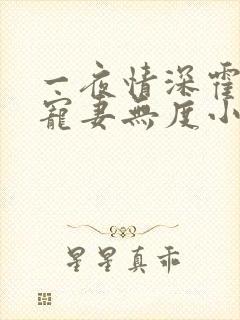 一夜情深霍
宠妻无度小
星星真乖